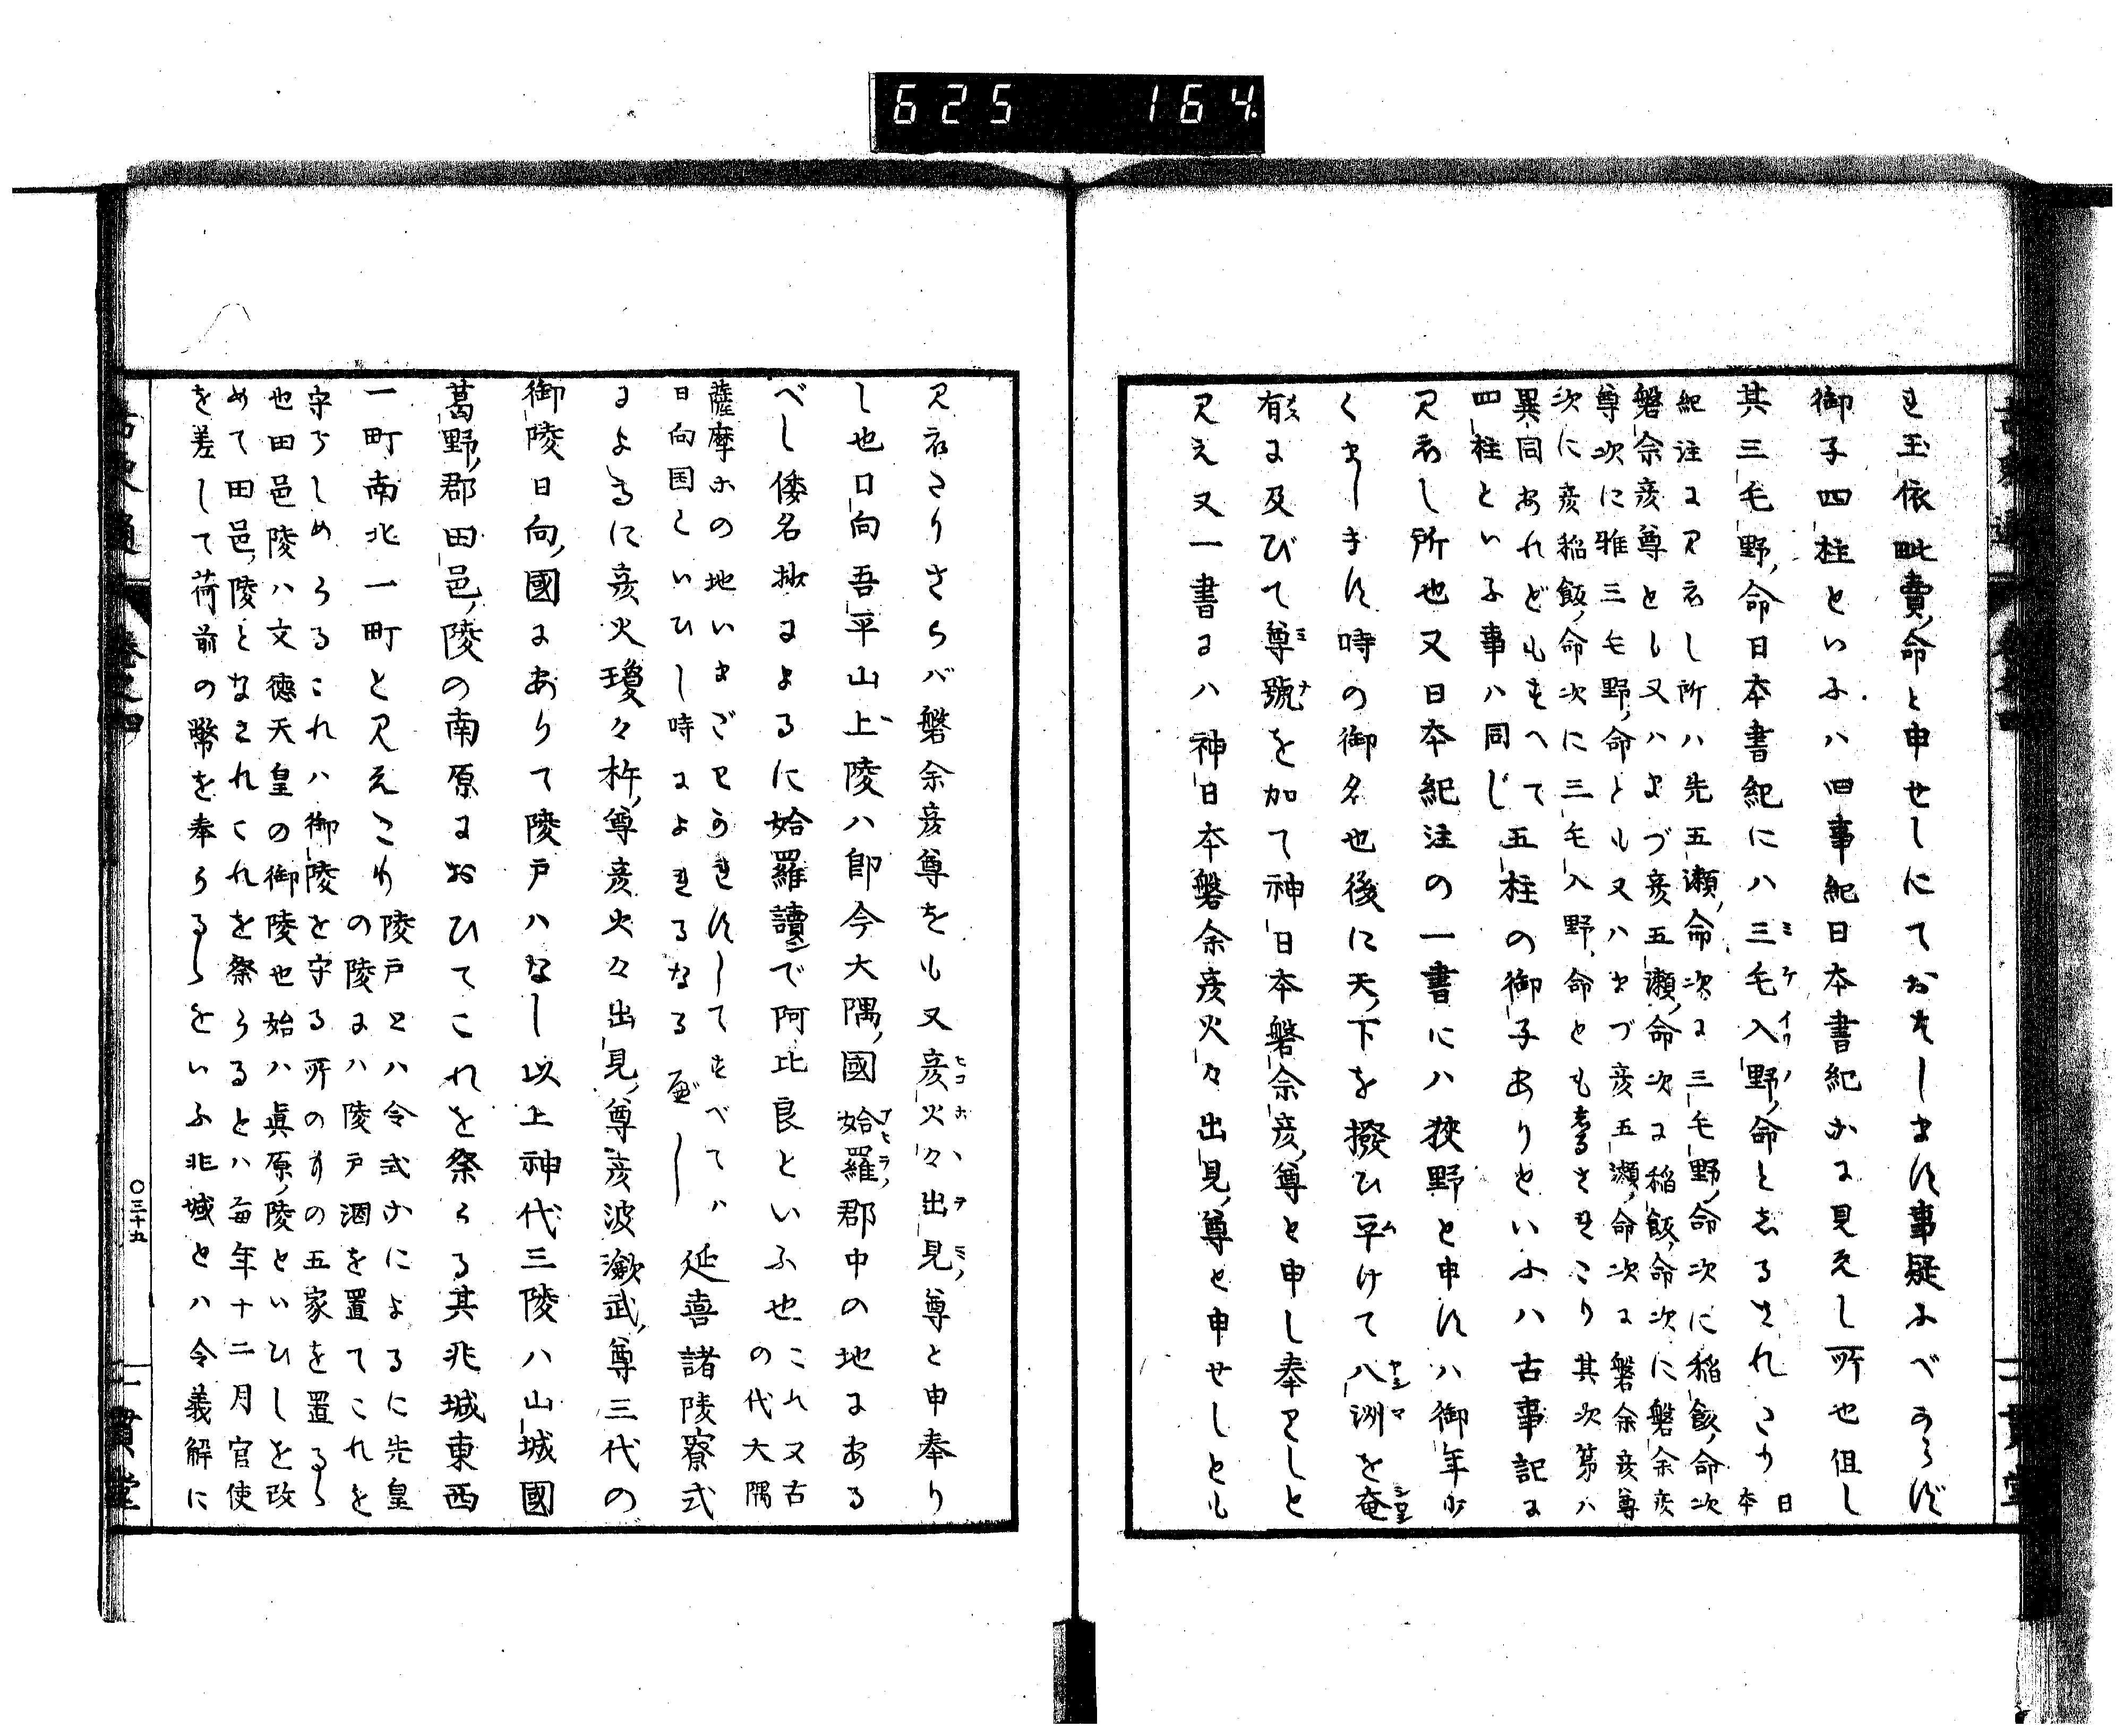 625 164
れ玉依毗賣命と申せしにておはします事疑ふべからず
御子四柱といふハ四事紀日本書紀ホに見えし所也但し
其三毛野命日本書紀にハ三毛入野命としるされこの
日
本
紀注に見えし所ハ先五瀬命次に三毛野命次に稲飯命次
磐余彦尊とし又ハまづ彦五瀬命次に稲飯命次に磐余彦
尊次に稚三毛野命とも又ハまづ彦五瀬命次に磐余彦尊
次に彦稲飯命次に三毛入野命ともしるされたり其次第ハ
異同あれどもすべて
四柱といふ事ハ同じ
五柱の御子ありといふハ古事記に
見えし所也又日本紀注の一書にハ狹野と申すハ御年少
くまします時の御名也後に天下を撥ひ平けて八洲を奄
有に及びて尊號を加て神日本磐余彦尊と申し奉りしと
見え又一書にハ神日本磐余彦火々出見尊と申せしとも
見えたりさらバ磐余彦尊をも又彦火々出見尊と申奉り
し也日向吾平山上陵ハ即今大隅國姶羅郡中の地にある
べし倭名抄によるに姶羅讀で阿比良といふ也
これ又古
の代大隅
薩摩ホの地いまだわかれずしてすべてハ
日向国といひし時によれるなるべし
延喜諸陵寮式
によるに彦火瓊々杵尊彦火々出見尊彦波瀲武尊三代の
御陵日向國にありて陵戸ハなし以上神代三陵ハ山城國
葛野郡田邑陵の南原におひてこれを祭らる其兆域東西
一町南北一町と見えたり
陵戸とハ令式ホによるに先皇
の陵にハ陵戸酒を置てこれを
守らしめらるこれハ御陵を守る所のものの五家を置るゝ
也田邑陵ハ文徳天皇の御陵也始ハ眞原陵といひしを改
めて田邑陵となされくれを祭らるとハ毎年十二月官使
を差して荷前の幣を奉らるゝをいふ兆域とハ令義解に
古史通
卷之四
〇三十五
一貫堂